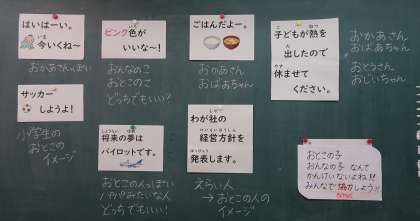 はいはーい。
いま
今いくね〜
おかあさんっぽい
ピンク色が
いいな〜!
おんなのこ
おとこのこ
どっちでもいい?
ごはんだよー。
おかあさん
おばあちゃん
子どもが熱を
出したので
休ませて
ください。
おかあさん
おばあちゃん
おとうさん
おじいちゃん
サッカー
しようよ!
小学生の
おとこの
イメージ
しょうらい ゆめ
将来の夢は
パイロットです。
おとこの人っぽい
どちでもいい!
わが社の
経営方針を
発表します。
えらい人
→おとこの人の
イメージ
おとこの子
おんなの子 なんて
かんけいないよね!!
みんなで協力しよう!!